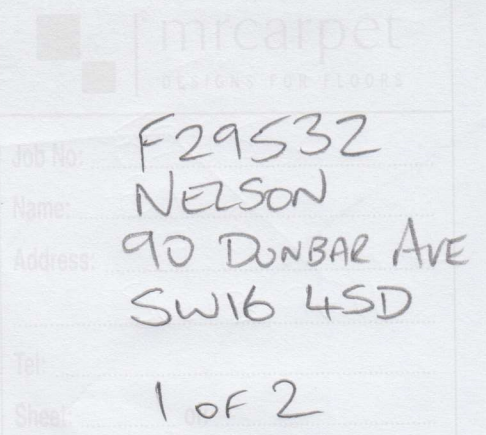 mrcarpet
DESIGNS FOR FLOORS
Job No: F29532
Name: NELSON
Address: 90 DUNBAR AVE
SW16 4SD
Tel:
Sheet: 1 OF 2